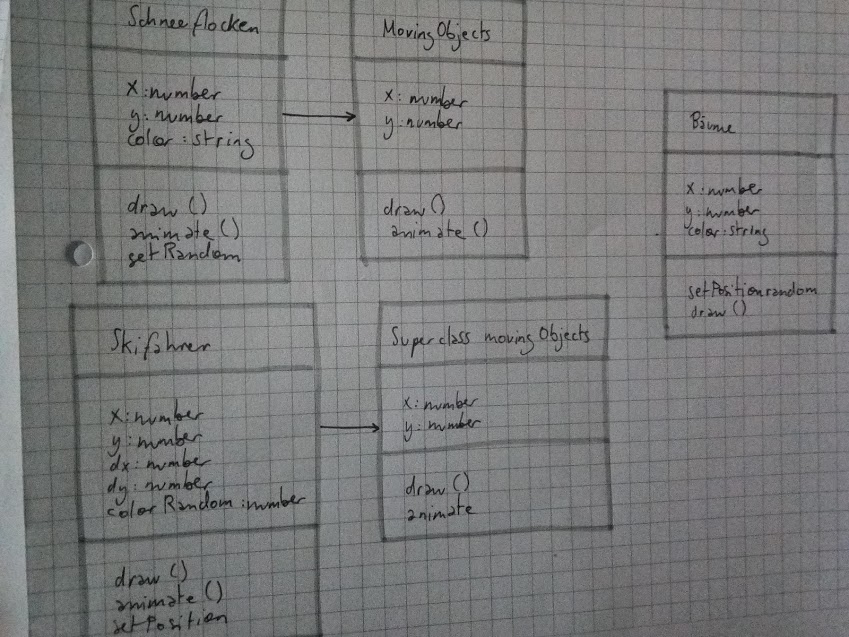 Schneeflocken
x:number
y:number
color:string
draw()
animate()
setRandom
MovingObjects
x:number
y:number
draw()
animate()
Bäume
x:number
y:number
color:string
setPositionrandom
draw()
Skifahrer
x:number
y:number
dx:number
dy:number
colorRandom:number
draw()
animate()
setPosition
Superclass movingObjects
x:number
y:number
draw()
animate